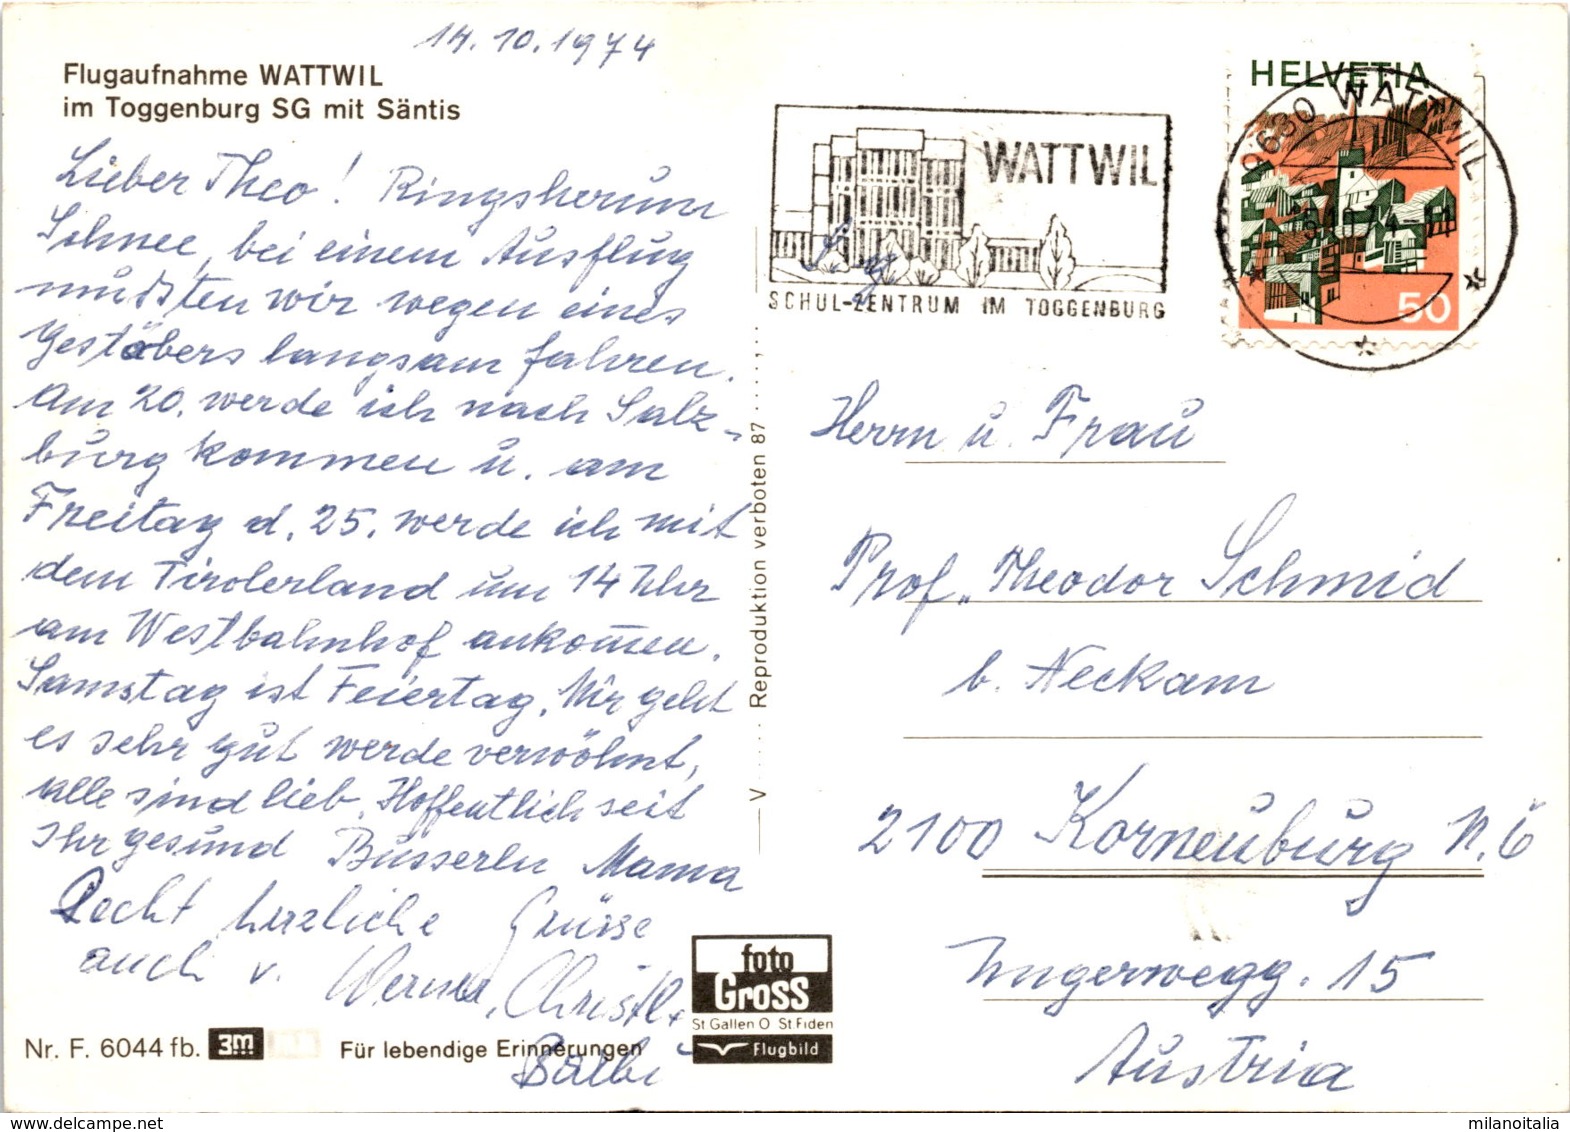 14.10.1974
Flugaufnahme WATTWIL
im Toggenburg SG mit Säntis
Lieber Theo! Ringsherum
Schnee, bei einem Ausflug
mußten wir wegen eines
Gestöbers langsam fahren.
Am 20. werde ich nach Salz-
burg kommen u. am
Freitag d. 25. werde ich mit
dem Tirolerland um 14 Uhr
am Westbahnhof ankom̅en.
Samstag ist Feiertag. Mir geht
es sehr gut werde verwöhnt,
alle sind lieb. Hoffentlich seit
Ihr gesund Busserln Mama
Recht herzliche Grüsse
auch v. Werner, Christl +
Balbi
Nr. F. 6044 fb. 3m Für lebendige Erinnerungen
foto
Gross
St Gallen O St Fiden
Flugbild
V.... Reproduktion verboten 87.......
WATTWIL
SCHUL-ZENTRUM IM TOGGENBURG
HELVETIA
50
9630 WATTWIL
Herrn u. Frau
Prof. Theodor Schmid
b. Neckam
2100 Korneuburg N.Ö
Ungerwegg. 15
Austria
milanoitalia